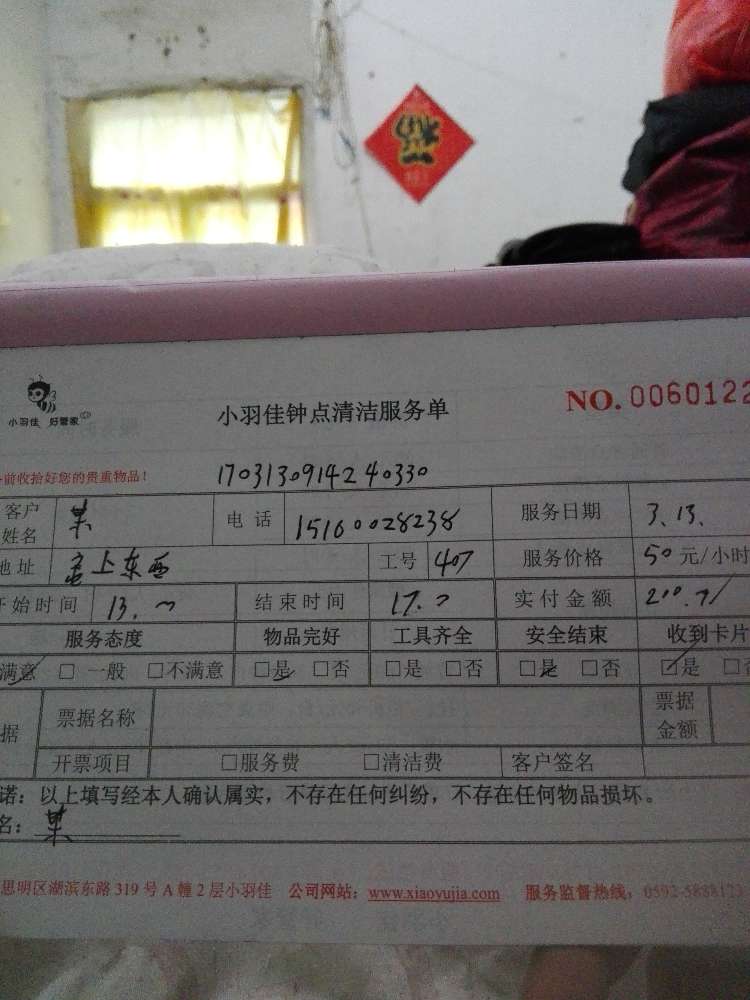 福
小羽佳 好管家
小羽佳钟点清洁服务单
NO. 0060122
前收拾好您的贵重物品！
170313091424 0330
客户姓名 电话 15160028238 服务日期 3.13.
地址 工号 407 服务价格 50元/小时
开始时间 13. 结束时间 17. 实付金额 200.
服务态度 物品完好 工具齐全 安全结束 收到卡片
满意 □一般 □不满意 □是 □否 □是 □否 □是 □否 □是 □否
据 票据名称 票据金额
开票项目 □服务费 □清洁费 客户签名
诺：以上填写经本人确认属实，不存在任何纠纷，不存在任何物品损坏。
名：
思明区湖滨东路 319 号 A 幢 2 层小羽佳 公司网站：www.xiaoyujia.com 服务监督热线：0592-5888123